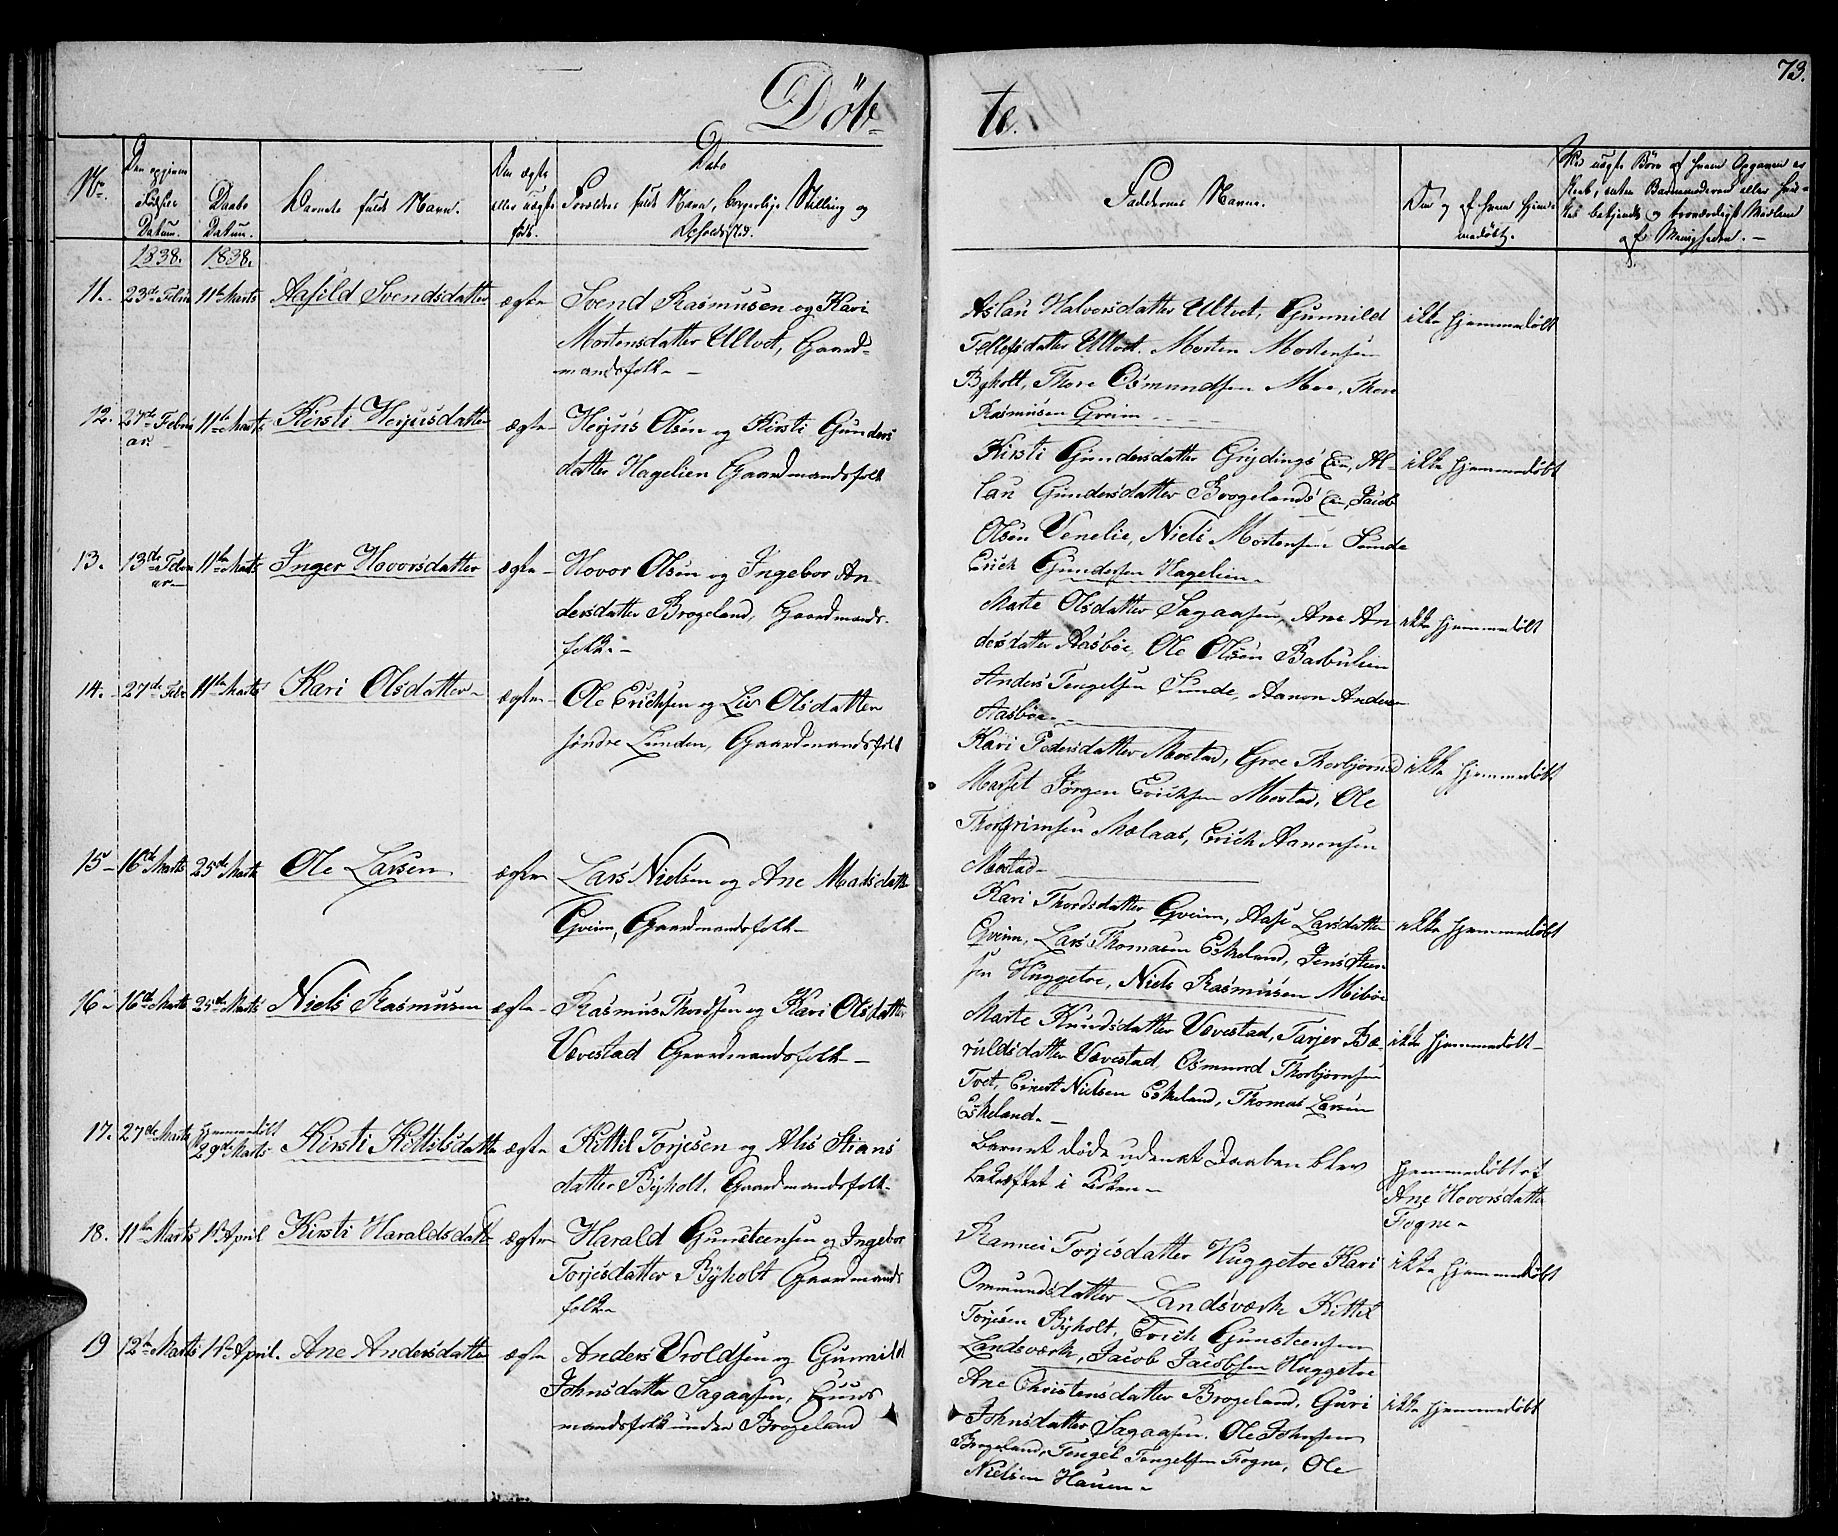 73.
Döb-
te.
No
Den opgivne
Fødsels
Datum.
Daabs
Datum.
Barnets fulde Navn.
Den ægte
eller uægte
født.
Dato
Forældres fulde Navn, borgerlige Stilling og
Opholdssted.
Faddernes Navne.
Om og af hvem hjem-
medøbt.
1838.
1838.
11.
23de Febru
11te Marts
Aasild Svendsdatter
ægte
Svend Rasmusen og Kari
Mortensdatter Ulltvet, Gaard-
mandsfolk
Aslau Halvorsdatter Ulltvet, Gunnild
Tellefsdatter Ulltvet. Morten Mortensen
Byholt, Thore Osmundsen Moe, Thore
Rasmusen Gveim
ikke hjemmedøbt
12.
27de Febru
ar
11te Marts
Kirsti Herjusdatter
ægte
Herjus Olsen og Kirsti Gunders
datter Hagelien Gaardmandsfolk
Kirsti Gundersdatter Grydings Eie, As-
lau Gundersdatter Brogelands Eie, Jacob
Olsen Venelie, Niels Mortensen Sunde
Erich Gundersen Hagelien
ikke hjemmedøbt
13.
13de Febru
ar
11te Marts
Inger Hovorsdatter
ægte
Hovor Olsen og Ingebor An-
dersdatter Brogeland, Gaardmands-
folk
Marte Olsdatter Sagaasen, Ane An
dersdatter Aasbøe, Ole Olsen Barbulien
Anders Tengelsen Sunde, Aanon Anders
Aasbøe
ikke hjemmedøbt
14.
27de Febr
11te Marts
Kari Olsdatter
ægte
Ole Erichsen og Liv Olsdatter
søndre Lunden, Gaardmandsfolk
Kari Pedersdatter Mostad, Groe Thorbjørnsd
Jørgen Erichsen Mostad, Ole
Thorgrimsen Mælaas, Erich Aanonsen
Mostad
ikke hjemmedøbt
15
16de Marts
25de Marts
Ole Larsen
ægte
Lars Nielsen og Ane Madsdatter
Gveim, Gaardmandsfolk
Kari Thordsdatter Gveim, Aase Larsdatter
Gveim, Lars Thomasen Eskeland, Jens Steen
sen Huggetve, Niels Rasmusen Mibøe
ikke hjemmedøbt
16
16de Marts
25de Marts
Niels Rasmusen
ægte
Rasmus Thordsen og Kari Olsdatter
Vævestad Gaardmandsfolk
Marte Knudsdatter Vævestad, Tarjer Bæ-
ruldsdatter Vævestad, Osmund Thorbjørnsen
Tvet, Ernst Nielsen Eskeland, Thomas Larsen
Eskeland.
ikke hjemmedøbt
17.
27de Marts
hjemmedøbt
29de Marts
Kirsti Kittilsdatter
ægte
Kittil Torjesen og Alis Stians
datter Byholt, Gaardmandsfolk
Barnet døde uden at Daaben blev
bekræftet i Kirken
hjemmedøbt af
Ane Hovorsdatter
Fogne
18.
11te Marts
13 April
Kirsti Haraldsdatt
ægte
Harald Gunsteensen og Ingebor
Torjesdatter Byholt Gaardmands
folk
Rannei Torjesdatter Huggetve Kari
Ommundsdatter Landsværk Kittel
Torjesen Byholt, Erich Gunsteensen
Landsværk, Jacob Jacobsen Huggetve
ikke hjemmedøbt
19
12te Marts
April.
Ane Andersdatter
ægte
Anders Vroldsen og Gunnild
Johnsdatter Sagaasen, Huus
mandsfolk under Brogeland
Ane Christensdatter Brogeland, Guri
Johnsdatter Sagaasen. Ole Johnsen
Brogeland, Tengel Tengelsen Fogne, Ole
Nielsen Hauen
ikke hjemmedøbt